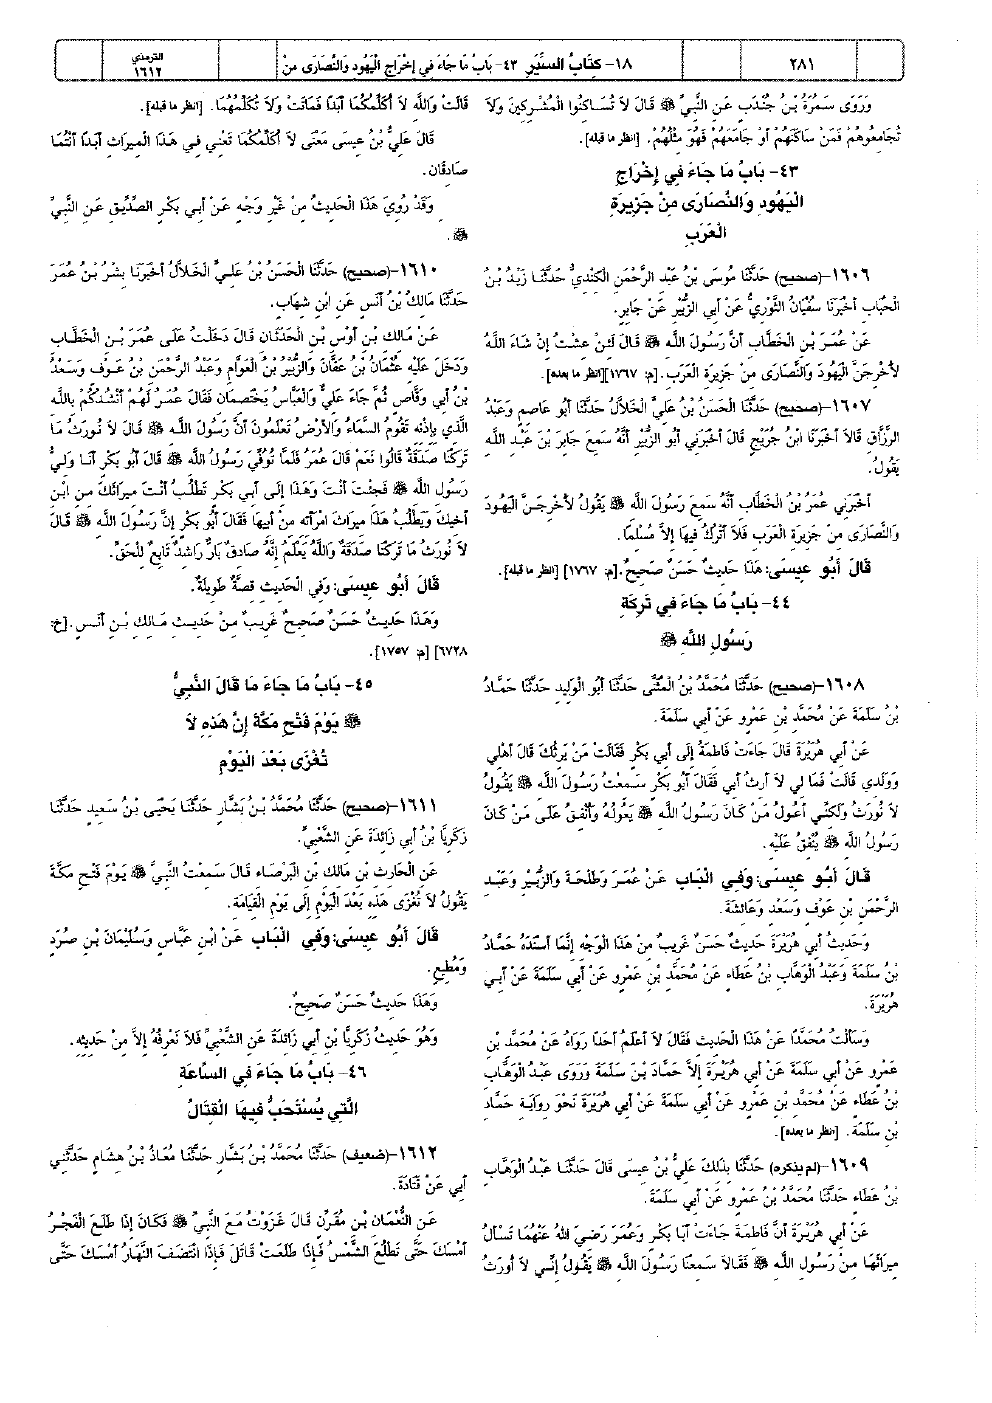 ٢٨١
١٨- كِتَابُ السِّيَرِ ٤٣- بَابُ مَا جَاءَ فِي إِخْرَاجِ الْيَهُودِ وَالنَّصَارَى مِنْ
الترمذي
١٦١٢
وَرَوَى سَمُرَةُ بْنُ جُنْدَبٍ عَنِ النَّبِيِّ ﷺ قَالَ لَا تُسَاكِنُوا الْمُشْرِكِينَ وَلَا
تُجَامِعُوهُمْ فَمَنْ سَاكَنَهُمْ أَوْ جَامَعَهُمْ فَهُوَ مِثْلُهُمْ. [انظر ما قبله].
٤٣- بَابُ مَا جَاءَ فِي إِخْرَاجِ
الْيَهُودِ وَالنَّصَارَى مِنْ جَزِيرَةِ
الْعَرَبِ
١٦٠٦-(صحيح) حَدَّثَنَا مُوسَى بْنُ عَبْدِ الرَّحْمَنِ الْكِنْدِيُّ حَدَّثَنَا زَيْدُ بْنُ
الْحُبَابِ أَخْبَرَنَا سُفْيَانُ الثَّوْرِيُّ عَنْ أَبِي الزُّبَيْرِ عَنْ جَابِرٍ.
عَنْ عُمَرَ بْنِ الْخَطَّابِ أَنَّ رَسُولَ اللَّهِ ﷺ قَالَ لَئِنْ عِشْتُ إِنْ شَاءَ اللَّهُ
لَأُخْرِجَنَّ الْيَهُودَ وَالنَّصَارَى مِنْ جَزِيرَةِ الْعَرَبِ. [م: ١٧٦٧][انظر ما بعده].
١٦٠٧-(صحيح) حَدَّثَنَا الْحَسَنُ بْنُ عَلِيٍّ الْخَلَّالُ حَدَّثَنَا أَبُو عَاصِمٍ وَعَبْدُ
الرَّزَّاقِ قَالَا أَخْبَرَنَا ابْنُ جُرَيْجٍ قَالَ أَخْبَرَنِي أَبُو الزُّبَيْرِ أَنَّهُ سَمِعَ جَابِرَ بْنَ عَبْدِ اللَّهِ
يَقُولُ.
أَخْبَرَنِي عُمَرُ بْنُ الْخَطَّابِ أَنَّهُ سَمِعَ رَسُولَ اللَّهِ ﷺ يَقُولُ لَأُخْرِجَنَّ الْيَهُودَ
وَالنَّصَارَى مِنْ جَزِيرَةِ الْعَرَبِ فَلَا أَتْرُكُ فِيهَا إِلَّا مُسْلِمًا.
قَالَ أَبُو عِيسَى: هَذَا حَدِيثٌ حَسَنٌ صَحِيحٌ. [م: ١٧٦٧] [انظر ما قبله].
٤٤- بَابُ مَا جَاءَ فِي تَرِكَةِ
رَسُولِ اللَّهِ ﷺ
١٦٠٨-(صحيح) حَدَّثَنَا مُحَمَّدُ بْنُ الْمُثَنَّى حَدَّثَنَا أَبُو الْوَلِيدِ حَدَّثَنَا حَمَّادُ
بْنُ سَلَمَةَ عَنْ مُحَمَّدِ بْنِ عَمْرٍو عَنْ أَبِي سَلَمَةَ.
عَنْ أَبِي هُرَيْرَةَ قَالَ جَاءَتْ فَاطِمَةُ إِلَى أَبِي بَكْرٍ فَقَالَتْ مَنْ يَرِثُكَ قَالَ أَهْلِي
وَوَلَدِي قَالَتْ فَمَا لِي لَا أَرِثُ أَبِي فَقَالَ أَبُو بَكْرٍ سَمِعْتُ رَسُولَ اللَّهِ ﷺ يَقُولُ
لَا نُورَثُ وَلَكِنِّي أَعُولُ مَنْ كَانَ رَسُولُ اللَّهِ ﷺ يَعُولُهُ وَأُنْفِقُ عَلَى مَنْ كَانَ
رَسُولُ اللَّهِ ﷺ يُنْفِقُ عَلَيْهِ.
قَالَ أَبُو عِيسَى: وَفِي الْبَابِ عَنْ عُمَرَ وَطَلْحَةَ وَالزُّبَيْرِ وَعَبْدِ
الرَّحْمَنِ بْنِ عَوْفٍ وَسَعْدٍ وَعَائِشَةَ.
وَحَدِيثُ أَبِي هُرَيْرَةَ حَدِيثٌ حَسَنٌ غَرِيبٌ مِنْ هَذَا الْوَجْهِ إِنَّمَا أَسْنَدَهُ حَمَّادُ
بْنُ سَلَمَةَ وَعَبْدُ الْوَهَّابِ بْنُ عَطَاءٍ عَنْ مُحَمَّدِ بْنِ عَمْرٍو عَنْ أَبِي سَلَمَةَ عَنْ أَبِي
هُرَيْرَةَ.
وَسَأَلْتُ مُحَمَّدًا عَنْ هَذَا الْحَدِيثِ فَقَالَ لَا أَعْلَمُ أَحَدًا رَوَاهُ عَنْ مُحَمَّدِ بْنِ
عَمْرٍو عَنْ أَبِي سَلَمَةَ عَنْ أَبِي هُرَيْرَةَ إِلَّا حَمَّادَ بْنَ سَلَمَةَ وَرَوَى عَبْدُ الْوَهَّابِ
بْنُ عَطَاءٍ عَنْ مُحَمَّدِ بْنِ عَمْرٍو عَنْ أَبِي سَلَمَةَ عَنْ أَبِي هُرَيْرَةَ نَحْوَ رِوَايَةِ حَمَّادِ
بْنِ سَلَمَةَ. [انظر ما بعده].
١٦٠٩-(لم يذكره) حَدَّثَنَا بِذَلِكَ عَلِيُّ بْنُ عِيسَى قَالَ حَدَّثَنَا عَبْدُ الْوَهَّابِ
بْنُ عَطَاءٍ حَدَّثَنَا مُحَمَّدُ بْنُ عَمْرٍو عَنْ أَبِي سَلَمَةَ.
عَنْ أَبِي هُرَيْرَةَ أَنَّ فَاطِمَةَ جَاءَتْ أَبَا بَكْرٍ وَعُمَرَ رَضِيَ اللَّهُ عَنْهُمَا تَسْأَلُ
مِيرَاثَهَا مِنْ رَسُولِ اللَّهِ ﷺ فَقَالَا سَمِعْنَا رَسُولَ اللَّهِ ﷺ يَقُولُ إِنِّي لَا أُورَثُ
قَالَتْ وَاللَّهِ لَا أُكَلِّمُكُمَا أَبَدًا فَمَاتَتْ وَلَا تُكَلِّمُهُمَا. [انظر ما قبله].
قَالَ عَلِيُّ بْنُ عِيسَى مَعْنَى لَا أُكَلِّمُكُمَا تَعْنِي فِي هَذَا الْمِيرَاثِ أَبَدًا أَنْتُمَا
صَادِقَانِ.
وَقَدْ رُوِيَ هَذَا الْحَدِيثُ مِنْ غَيْرِ وَجْهٍ عَنْ أَبِي بَكْرٍ الصِّدِّيقِ عَنِ النَّبِيِّ
ﷺ.
١٦١٠-(صحيح) حَدَّثَنَا الْحَسَنُ بْنُ عَلِيٍّ الْخَلَّالُ أَخْبَرَنَا بِشْرُ بْنُ عُمَرَ
حَدَّثَنَا مَالِكُ بْنُ أَنَسٍ عَنِ ابْنِ شِهَابٍ.
عَنْ مَالِكِ بْنِ أَوْسِ بْنِ الْحَدَثَانِ قَالَ دَخَلْتُ عَلَى عُمَرَ بْنِ الْخَطَّابِ
وَدَخَلَ عَلَيْهِ عُثْمَانُ بْنُ عَفَّانَ وَالزُّبَيْرُ بْنُ الْعَوَّامِ وَعَبْدُ الرَّحْمَنِ بْنُ عَوْفٍ وَسَعْدُ
بْنُ أَبِي وَقَّاصٍ ثُمَّ جَاءَ عَلِيٌّ وَالْعَبَّاسُ يَخْتَصِمَانِ فَقَالَ عُمَرُ لَهُمْ أَنْشُدُكُمْ بِاللَّهِ
الَّذِي بِإِذْنِهِ تَقُومُ السَّمَاءُ وَالْأَرْضُ تَعْلَمُونَ أَنَّ رَسُولَ اللَّهِ ﷺ قَالَ لَا نُورَثُ مَا
تَرَكْنَا صَدَقَةٌ قَالُوا نَعَمْ قَالَ عُمَرُ فَلَمَّا تُوُفِّيَ رَسُولُ اللَّهِ ﷺ قَالَ أَبُو بَكْرٍ أَنَا وَلِيُّ
رَسُولِ اللَّهِ ﷺ فَجِئْتَ أَنْتَ وَهَذَا إِلَى أَبِي بَكْرٍ تَطْلُبُ أَنْتَ مِيرَاثَكَ مِنِ ابْنِ
أَخِيكَ وَيَطْلُبُ هَذَا مِيرَاثَ امْرَأَتِهِ مِنْ أَبِيهَا فَقَالَ أَبُو بَكْرٍ إِنَّ رَسُولَ اللَّهِ ﷺ قَالَ
لَا نُورَثُ مَا تَرَكْنَا صَدَقَةٌ وَاللَّهُ يَعْلَمُ إِنَّهُ صَادِقٌ بَارٌّ رَاشِدٌ تَابِعٌ لِلْحَقِّ.
قَالَ أَبُو عِيسَى: وَفِي الْحَدِيثِ قِصَّةٌ طَوِيلَةٌ.
وَهَذَا حَدِيثٌ حَسَنٌ صَحِيحٌ غَرِيبٌ مِنْ حَدِيثِ مَالِكِ بْنِ أَنَسٍ. [خ:
٦٧٢٨] [م: ١٧٥٧].
٤٥- بَابُ مَا جَاءَ مَا قَالَ النَّبِيُّ
ﷺ يَوْمَ فَتْحِ مَكَّةَ إِنَّ هَذِهِ لَا
تُغْزَى بَعْدَ الْيَوْمِ
١٦١١-(صحيح) حَدَّثَنَا مُحَمَّدُ بْنُ بَشَّارٍ حَدَّثَنَا يَحْيَى بْنُ سَعِيدٍ حَدَّثَنَا
زَكَرِيَّا بْنُ أَبِي زَائِدَةَ عَنِ الشَّعْبِيِّ.
عَنِ الْحَارِثِ بْنِ مَالِكِ بْنِ الْبَرْصَاءِ قَالَ سَمِعْتُ النَّبِيَّ ﷺ يَوْمَ فَتْحِ مَكَّةَ
يَقُولُ لَا تُغْزَى هَذِهِ بَعْدَ الْيَوْمِ إِلَى يَوْمِ الْقِيَامَةِ.
قَالَ أَبُو عِيسَى: وَفِي الْبَابِ عَنِ ابْنِ عَبَّاسٍ وَسُلَيْمَانَ بْنِ صُرَدٍ
وَمُطِيعٍ.
وَهَذَا حَدِيثٌ حَسَنٌ صَحِيحٌ.
وَهُوَ حَدِيثُ زَكَرِيَّا بْنِ أَبِي زَائِدَةَ عَنِ الشَّعْبِيِّ فَلَا نَعْرِفُهُ إِلَّا مِنْ حَدِيثِهِ.
٤٦- بَابُ مَا جَاءَ فِي السَّاعَةِ
الَّتِي يُسْتَحَبُّ فِيهَا الْقِتَالُ
١٦١٢-(ضعيف) حَدَّثَنَا مُحَمَّدُ بْنُ بَشَّارٍ حَدَّثَنَا مُعَاذُ بْنُ هِشَامٍ حَدَّثَنِي
أَبِي عَنْ قَتَادَةَ.
عَنِ النُّعْمَانِ بْنِ مُقَرِّنٍ قَالَ غَزَوْتُ مَعَ النَّبِيِّ ﷺ فَكَانَ إِذَا طَلَعَ الْفَجْرُ
أَمْسَكَ حَتَّى تَطْلُعَ الشَّمْسُ فَإِذَا طَلَعَتْ قَاتَلَ فَإِذَا انْتَصَفَ النَّهَارُ أَمْسَكَ حَتَّى